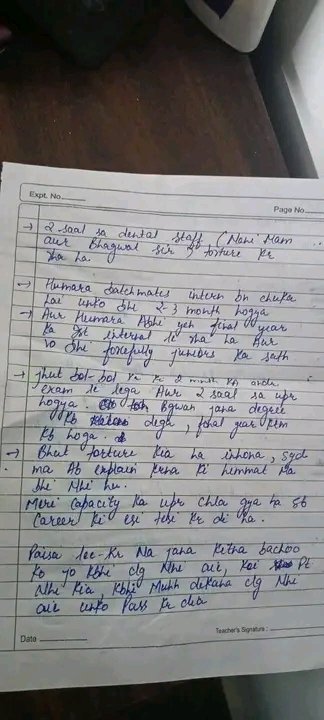 Expt. No.
Page No.
→ 2 saal sa dental staff ( Nahi Mam
aur Bhagwat Sir torture kr
rha ha
→ Humara batchmates intern bn chuka
hai unko bhi 2-3 month hogya
→ Aur Humara Abhi yeh final year
ka 1st internal le rha ha Aur
vo bhi forcefully juniors ka sath
→ jhut bol-bol kr 2 month
exam le lega Aur 2 saal sa upr
hogya. Bgwan jana degree
kb dega, final year kb
kb hoga.
→ Bhut torture kia ha inhona, syd
ma Ab explain krna ki himmat
bhi Nhi hu.
Meri capacity ka upr chla gya ha sb
Career ki esi tesi kr di ha.
Paisa lee-kr Na jana kitna bachoo
ko jo kbhi clg Nhi aie, koi Pt
Nhi kia, kbhi Muhh dekana clg Nhi
aie unko Pass kr dia
Teacher's Signature :
Date